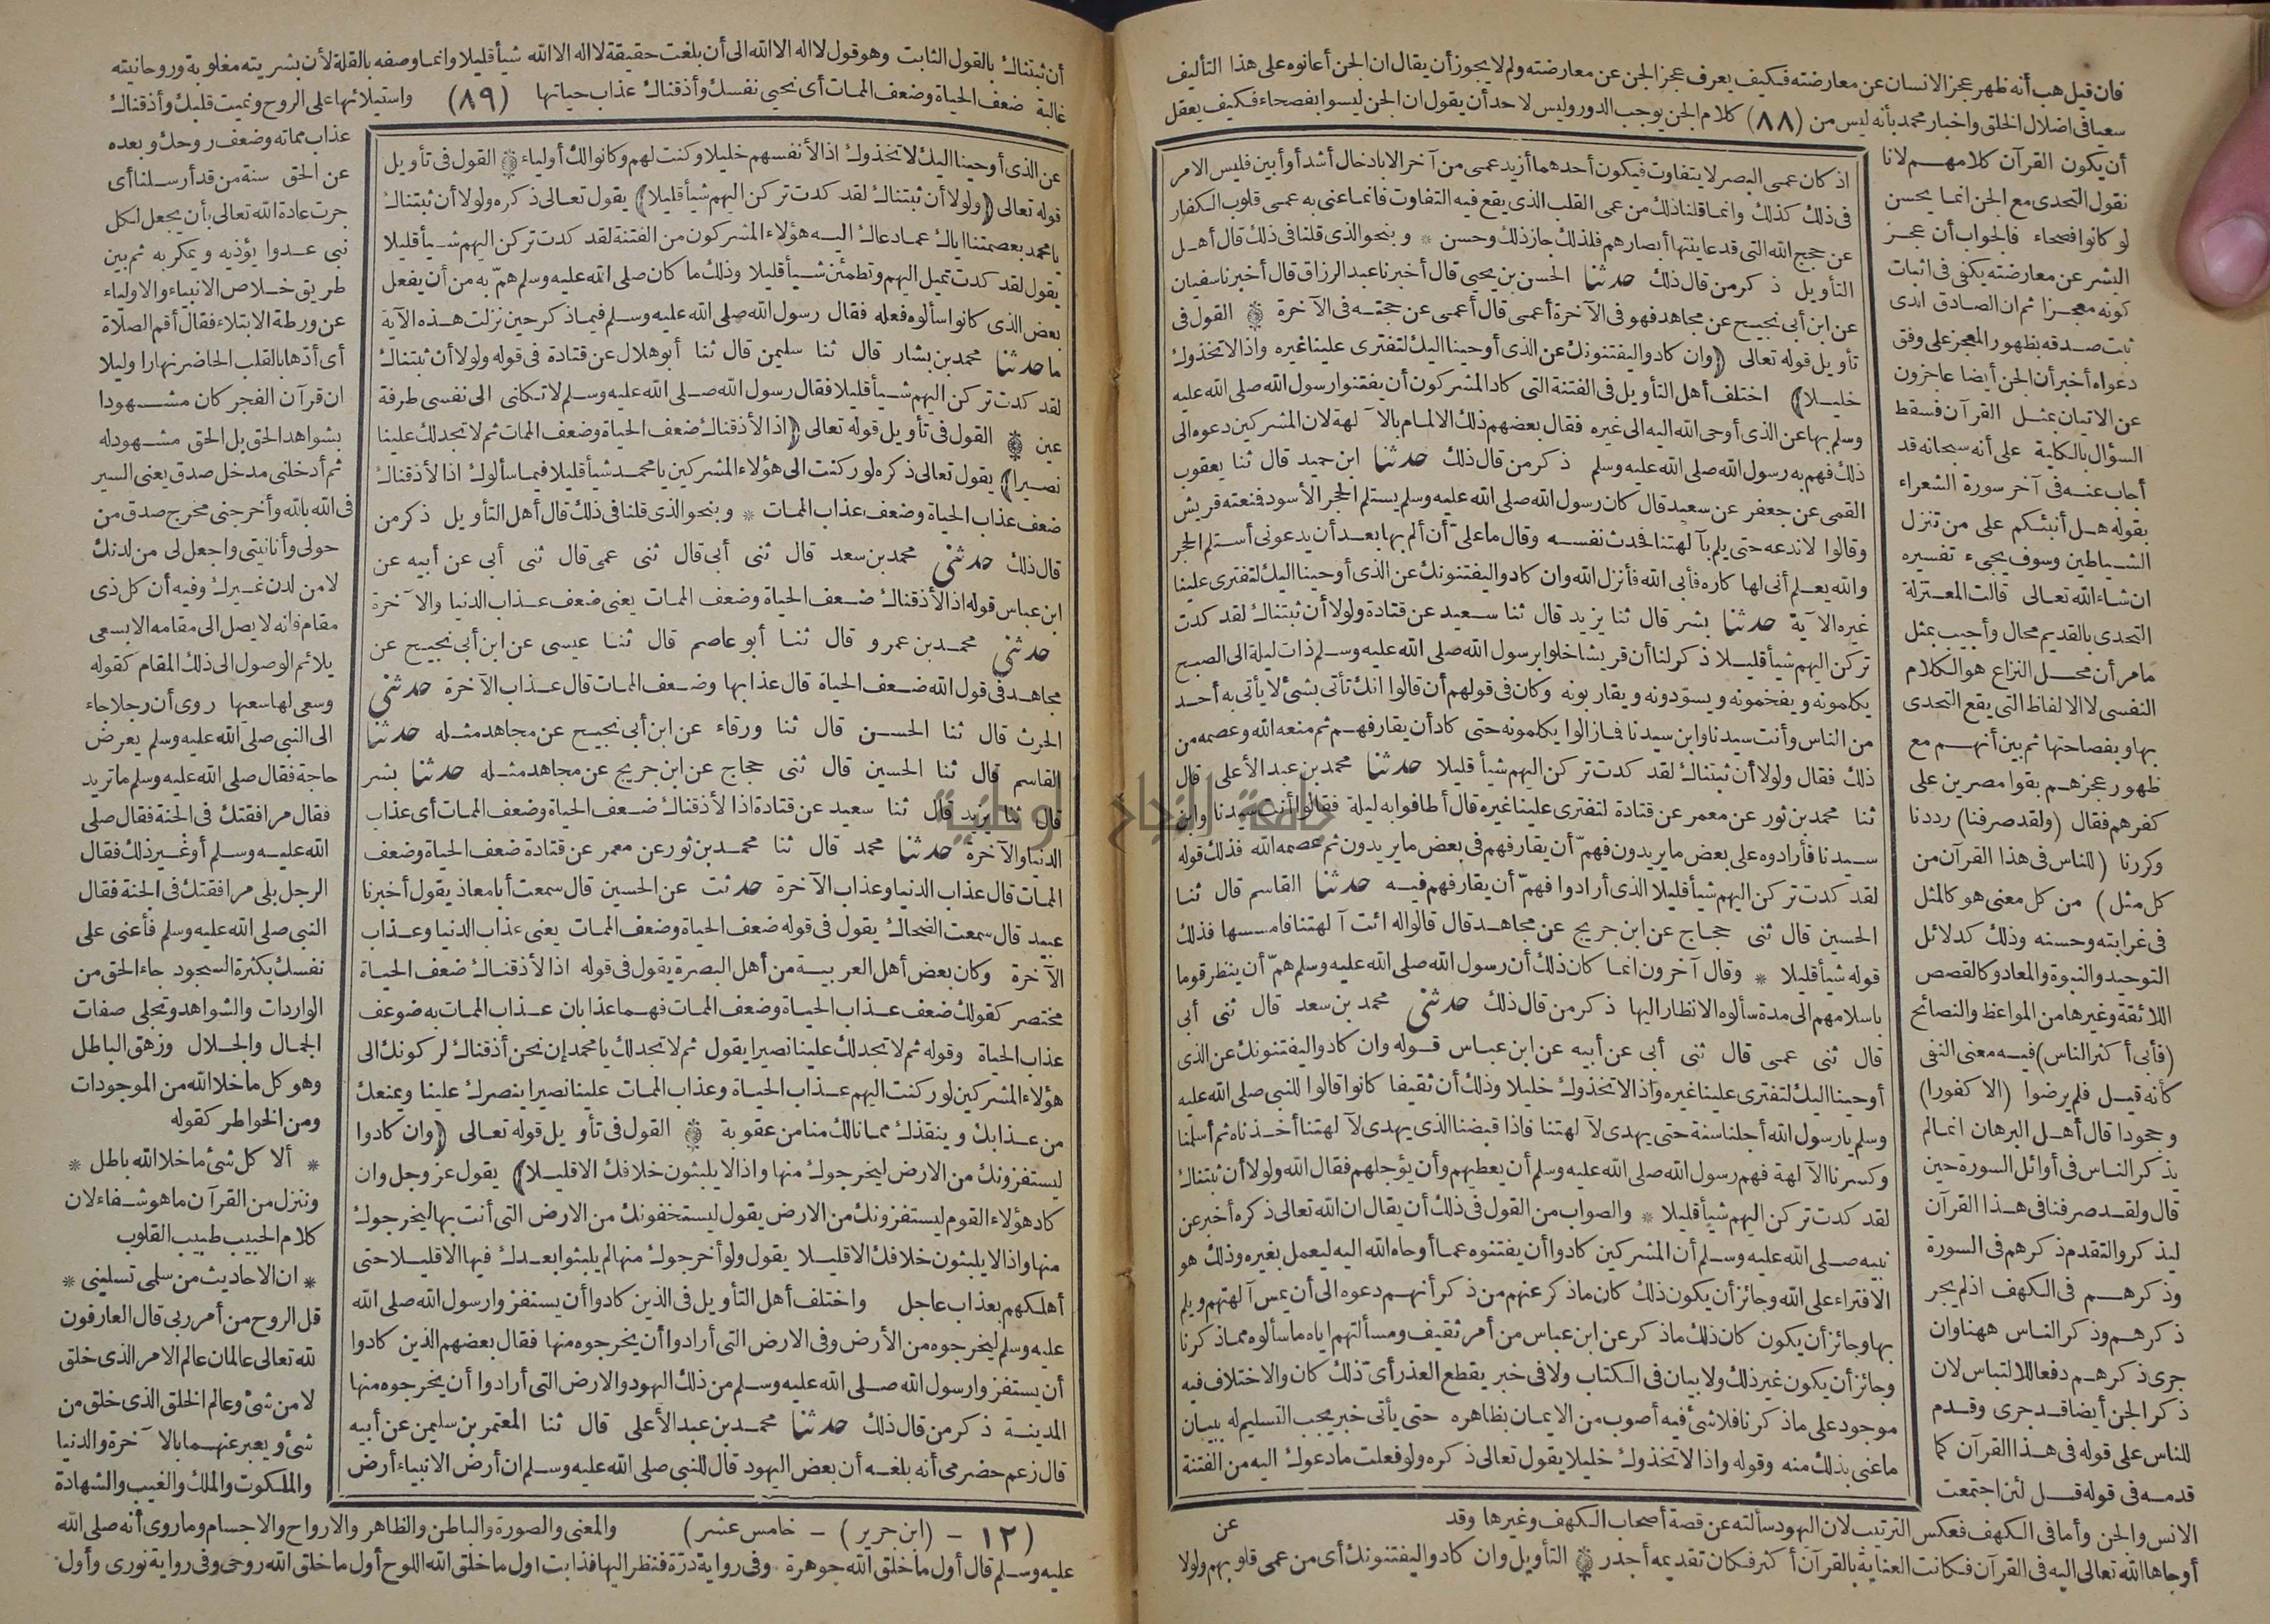 فان قيل هب أنه ظهر عجز الانسان عن معارضته فكيف يعرف عجز الجن عن معارضته ولم لا يجوز أن يقال ان الجن أعانوه على هذا التأليف
سعيا فى اضلال الخلق واخبار محمد بأنه ليس من (٨٨) كلام الجن يوجب الدور وليس لاحد أن يقول ان الجن ليسوا بفصحاء فكيف يعقل
أن يكون القرآن كلامهم لانا
نقول التحدى مع الجن انما يحسن
لو كانوا فصحاء فالجواب أن عجز
البشر عن معارضته يكفى فى اثبات
كونه معجزا ثم ان الصادق الذى
ثبت صدقه بظهور المعجز على وفق
دعواه أخبر أن الجن أيضا عاجزون
عن الاتيان بمثل القرآن فسقط
السؤال بالكلية على أنه سبحانه قد
أجاب عنه فى آخر سورة الشعراء
بقوله هل أنبئكم على من تنزل
الشياطين وسوف يجىء تفسيره
ان شاء الله تعالى قالت المعتزلة
التحدى بالقديم محال وأجيب بمثل
ما مر أن محل النزاع هو الكلام
النفسى لا الالفاظ التى يقع التحدى
بها وبفصاحتها ثم بين أنهم مع
ظهور عجزهم بقوا مصرين على
كفرهم فقال (ولقد صرفنا) رددنا
وكررنا (للناس فى هذا القرآن من
كل مثل) من كل معنى هو كالمثل
فى غرابته وحسنه وذلك كدلائل
التوحيد والنبوة والمعاد وكالقصص
اللائقة وغيرها من المواعظ والنصائح
(فأبى أكثر الناس) فيه معنى النفى
كأنه قيل فلم يرضوا (الا كفورا)
وجحودا قال أهل البرهان انما لم
يذكر الناس فى أوائل السورة حين
قال ولقد صرفنا فى هذا القرآن
ليذكروا لتقدم ذكرهم فى السورة
وذكرهم فى الكهف اذ لم يجر
ذكرهم وذكر الناس ههنا وان
جرى ذكرهم دفعا للالتباس لان
ذكر الجن أيضا قد جرى وقدم
للناس على قوله فى هذا القرآن كما
قدمه فى قوله قل لئن اجتمعت
اذ كان عمى البصر لا يتفاوت فيكون أحدهما أزيد عمى من آخر الا بادخال أشد أو أبين فليس الامر
فى ذلك كذلك وانما قلنا ذلك من عمى القلب الذى يقع فيه التفاوت فانما عنى به عمى قلوب الكفار
عن حجج الله التى قد عاينتها أبصارهم فلذلك جاز ذلك وحسن * وبنحو الذى قلنا فى ذلك قال أهل
التأويل ذكر من قال ذلك حدثنا الحسن بن يحيى قال أخبرنا عبد الرزاق قال أخبرنا سفيان
عن ابن أبى نجيح عن مجاهد فهو فى الآخرة أعمى قال أعمى عن حجته فى الآخرة * القول فى
تأويل قوله تعالى (وان كادوا ليفتنونك عن الذى أوحينا اليك لتفترى علينا غيره واذا لاتخذوك
خليلا) اختلف أهل التأويل فى الفتنة التى كاد المشركون أن يفتنوا رسول الله صلى الله عليه
وسلم بها عن الذى أوحى الله اليه الى غيره فقال بعضهم ذلك الالمام بالآلهة لان المشركين دعوه الى
ذلك فهم به رسول الله صلى الله عليه وسلم ذكر من قال ذلك حدثنا ابن حميد قال ثنا يعقوب
القمى عن جعفر عن سعيد قال كان رسول الله صلى الله عليه وسلم يستلم الحجر الأسود فنعته قريش
وقالوا لا ندعه حتى يلم بآلهتنا فحدث نفسه وقال ما على أن ألم بها بعد أن يدعونى أستلم الحجر
والله يعلم أنى لها كاره فأبى الله فأنزل الله وان كادوا ليفتنونك عن الذى أوحينا اليك لتفترى علينا
غيره الآية حدثنا بشر قال ثنا يزيد قال ثنا سعيد عن قتادة ولولا أن ثبتناك لقد كدت
تركن اليهم شيأ قليلا ذكر لنا أن قريشا خلوا برسول الله صلى الله عليه وسلم ذات ليلة الى الصبح
يكلمونه ويفخمونه ويسودونه ويقاربونه وكان فى قولهم أن قالوا انك تأتى بشئ لا يأتى به أحد
من الناس وأنت سيدنا وابن سيدنا فما زالوا يكلمونه حتى كاد أن يقارفهم ثم منعه الله وعصمه من
ذلك فقال ولولا أن ثبتناك لقد كدت تركن اليهم شيأ قليلا حدثنا محمد بن عبد الأعلى قال
ثنا محمد بن ثور عن معمر عن قتادة لتفترى علينا غيره قال أطافوا به ليلة فقالوا أنت سيدنا وابن
سيدنا فأرادوه على بعض ما يريدون فهمّ أن يقارفهم فى بعض ما يريدون ثم عصمه الله فذلك قوله
لقد كدت تركن اليهم شيأ قليلا الذى أرادوا فهمّ أن يقارفهم فيه حدثنا القاسم قال ثنا
الحسين قال ثنى حجاج عن ابن جريج عن مجاهد قال قالوا له ائت آلهتنا فامسسها فذلك
قوله شيأ قليلا * وقال آخرون انما كان ذلك أن رسول الله صلى الله عليه وسلم همّ أن ينظر قوما
باسلامهم الى مدة سألوه الانظار اليها ذكر من قال ذلك حدثنى محمد بن سعد قال ثنى أبى
قال ثنى عمى قال ثنى أبى عن أبيه عن ابن عباس قوله وان كادوا ليفتنونك عن الذى
أوحينا اليك لتفترى علينا غيره واذا لاتخذوك خليلا وذلك أن ثقيفا كانوا قالوا للنبى صلى الله عليه
وسلم يا رسول الله أجلنا سنة حتى يهدى لآلهتنا فاذا قبضنا الذى يهدى لآلهتنا أخذناه ثم أسلمنا
وكسرنا الآلهة فهم رسول الله صلى الله عليه وسلم أن يعطيهم وأن يؤجلهم فقال الله ولولا أن ثبتناك
لقد كدت تركن اليهم شيأ قليلا * والصواب من القول فى ذلك أن يقال ان الله تعالى ذكره أخبر عن
نبيه صلى الله عليه وسلم أن المشركين كادوا أن يفتنوه عما أوحاه الله اليه ليعمل بغيره وذلك هو
الافتراء على الله وجائز أن يكون ذلك كان ما ذكر عنهم من ذكر أنهم دعوه الى أن يمس آلهتهم ويلم
بها وجائز أن يكون كان ذلك ما ذكر عن ابن عباس من أمر ثقيف ومسألتهم اياه ما سألوه مما ذكرنا
وجائز أن يكون غير ذلك ولا بيان فى الكتاب ولا فى خبر يقطع العذر أىّ ذلك كان والاختلاف فيه
موجود على ما ذكرنا فلا شئ فيه أصوب من الايمان بظاهره حتى يأتى خبر يجب التسليم له ببيان
ما عنى بذلك منه وقوله واذا لاتخذوك خليلا يقول تعالى ذكره ولو فعلت ما دعوك اليه من الفتنة
عن
الانس والجن وأما فى الكهف فعكس الترتيب لان اليهود سألته عن قصة أصحاب الكهف وغيرها وقد
أوحاها الله تعالى اليه فى القرآن فكانت العناية بالقرآن أكثر فكان تقديمه أجدر * التأويل وان كادوا ليفتنونك أى من عمى قلوبهم ولولا
أن ثبتناك بالقول الثابت وهو قول لا اله الا الله الى أن بلغت حقيقة لا اله الا الله شيأ قليلا وانما وصفه بالقلة لأن بشريته مغلوبة وروحانيته
غالبة ضعف الحياة وضعف الممات أى نحيى نفسك وأذقناك عذاب حياتها (٨٩) واستيلائها على الروح ونميت قلبك وأذقناك
عن الذى أوحينا اليك لاتخذوك اذا لأنفسهم خليلا وكنت لهم وكانوا لك أولياء * القول فى تأويل
قوله تعالى (ولولا أن ثبتناك لقد كدت تركن اليهم شيأ قليلا) يقول تعالى ذكره ولولا أن ثبتناك
يا محمد بعصمتنا اياك عما دعاك اليه هؤلاء المشركون من الفتنة لقد كدت تركن اليهم شيأ قليلا
يقول لقد كدت تميل اليهم وتطمئن شيأ قليلا وذلك ما كان صلى الله عليه وسلم همّ به من أن يفعل
بعض الذى كانوا سألوه فعله فقال رسول الله صلى الله عليه وسلم فيما ذكر حين نزلت هذه الآية
ما حدثنا محمد بن بشار قال ثنا سليمن قال ثنا أبو هلال عن قتادة فى قوله ولولا أن ثبتناك
لقد كدت تركن اليهم شيأ قليلا فقال رسول الله صلى الله عليه وسلم لا تكلنى الى نفسى طرفة
عين * القول فى تأويل قوله تعالى (اذا لأذقناك ضعف الحياة وضعف الممات ثم لا تجد لك علينا
نصيرا) يقول تعالى ذكره لو ركنت الى هؤلاء المشركين يا محمد شيأ قليلا فيما سألوك اذا لأذقناك
ضعف عذاب الحياة وضعف عذاب الممات * وبنحو الذى قلنا فى ذلك قال أهل التأويل ذكر من
قال ذلك حدثنى محمد بن سعد قال ثنى أبى قال ثنى عمى قال ثنى أبى عن أبيه عن
ابن عباس قوله اذا لأذقناك ضعف الحياة وضعف الممات يعنى ضعف عذاب الدنيا والآخرة
حدثنى محمد بن عمرو قال ثنا أبو عاصم قال ثنا عيسى عن ابن أبى نجيح عن
مجاهد فى قول الله ضعف الحياة قال عذابها وضعف الممات قال عذاب الآخرة حدثنى
الحرث قال ثنا الحسن قال ثنا ورقاء عن ابن أبى نجيح عن مجاهد مثله حدثنا
القاسم قال ثنا الحسين قال ثنى حجاج عن ابن جريج عن مجاهد مثله حدثنا بشر
قال ثنا يزيد قال ثنا سعيد عن قتادة اذا لأذقناك ضعف الحياة وضعف الممات أى عذاب
الدنيا والآخرة حدثنا محمد قال ثنا محمد بن ثور عن معمر عن قتادة ضعف الحياة وضعف
الممات قال عذاب الدنيا وعذاب الآخرة حدثت عن الحسين قال سمعت أبا معاذ يقول أخبرنا
عبيد قال سمعت الضحاك يقول فى قوله ضعف الحياة وضعف الممات يعنى عذاب الدنيا وعذاب
الآخرة وكان بعض أهل العربية من أهل البصرة يقول فى قوله اذا لأذقناك ضعف الحياة
مختصر كقولك ضعف عذاب الحياة وضعف الممات فهما عذابان عذاب الممات به ضوعف
عذاب الحياة وقوله ثم لا تجد لك علينا نصيرا يقول ثم لا تجد لك يا محمد إن نحن أذقناك لركونك الى
هؤلاء المشركين لو ركنت اليهم عذاب الحياة وعذاب الممات علينا نصيرا ينصرك علينا ويمنعك
من عذابك وينقذك مما نالك منا من عقوبة * القول فى تأويل قوله تعالى (وان كادوا
ليستفزونك من الارض ليخرجوك منها واذا لا يلبثون خلافك الا قليلا) يقول عز وجل وان
كاد هؤلاء القوم ليستفزونك من الارض يقول ليستخفونك من الارض التى أنت بها ليخرجوك
منها واذا لا يلبثون خلافك الا قليلا يقول ولو أخرجوك منها لم يلبثوا بعدك فيها الا قليلا حتى
أهلكهم بعذاب عاجل واختلف أهل التأويل فى الذين كادوا أن يستفزوا رسول الله صلى الله
عليه وسلم ليخرجوه من الأرض وفى الارض التى أرادوا أن يخرجوه منها فقال بعضهم الذين كادوا
أن يستفزوا رسول الله صلى الله عليه وسلم من ذلك اليهود والارض التى أرادوا أن يخرجوه منها
المدينة ذكر من قال ذلك حدثنا محمد بن عبد الأعلى قال ثنا المعتمر بن سليمن عن أبيه
قال زعم حضرمى أنه بلغه أن بعض اليهود قال للنبى صلى الله عليه وسلم ان أرض الانبياء أرض
عذاب مماته وضعف روحك وبعده
عن الحق سنة من قد أرسلنا أى
جرت عادة الله تعالى بأن يجعل لكل
نبى عدوا يؤذيه ويمكر به ثم بين
طريق خلاص الانبياء والاولياء
عن ورطة الابتلاء فقال أقم الصلاة
أى أدّها بالقلب الحاضر نهارا وليلا
ان قرآن الفجر كان مشهودا
بشواهد الحق بل الحق مشهود له
ثم أدخلنى مدخل صدق يعنى السير
فى الله بالله وأخرجنى مخرج صدق من
حولى وأنانيتى واجعل لى من لدنك
لا من لدن غيرك وفيه أن كل ذى
مقام فانه لا يصل الى مقامه الا بسعى
يلائم الوصول الى ذلك المقام كقوله
وسعى لها سعيها روى أن رجلا جاء
الى النبى صلى الله عليه وسلم يعرض
حاجة فقال صلى الله عليه وسلم ما تريد
فقال مرافقتك فى الجنة فقال صلى
الله عليه وسلم أو غير ذلك فقال
الرجل بلى مرافقتك فى الجنة فقال
النبى صلى الله عليه وسلم فأعنى على
نفسك بكثرة السجود جاء الحق من
الواردات والشواهد وتجلى صفات
الجمال والجلال وزهق الباطل
وهو كل ما خلا الله من الموجودات
ومن الخواطر كقوله
* ألا كل شئ ما خلا الله باطل *
وننزل من القرآن ما هو شفاء لان
كلام الحبيب طبيب القلوب
* ان الاحاديث من سلمى تسلينى *
قل الروح من أمر ربى قال العارفون
لله تعالى عالمان عالم الامر الذى خلق
لا من شئ وعالم الخلق الذى خلق من
شئ ويعبر عنهما بالآخرة والدنيا
والملكوت والملك والغيب والشهادة
(١٢ - (ابن جرير) - خامس عشر) والمعنى والصورة والباطن والظاهر والارواح والاجسام وما روى أنه صلى الله
عليه وسلم قال أول ما خلق الله جوهرة وفى رواية درّة فنظر اليها فذابت أول ما خلق الله اللوح أول ما خلق الله روحى وفى رواية نورى وأول
جامعة النجاح الوطنية